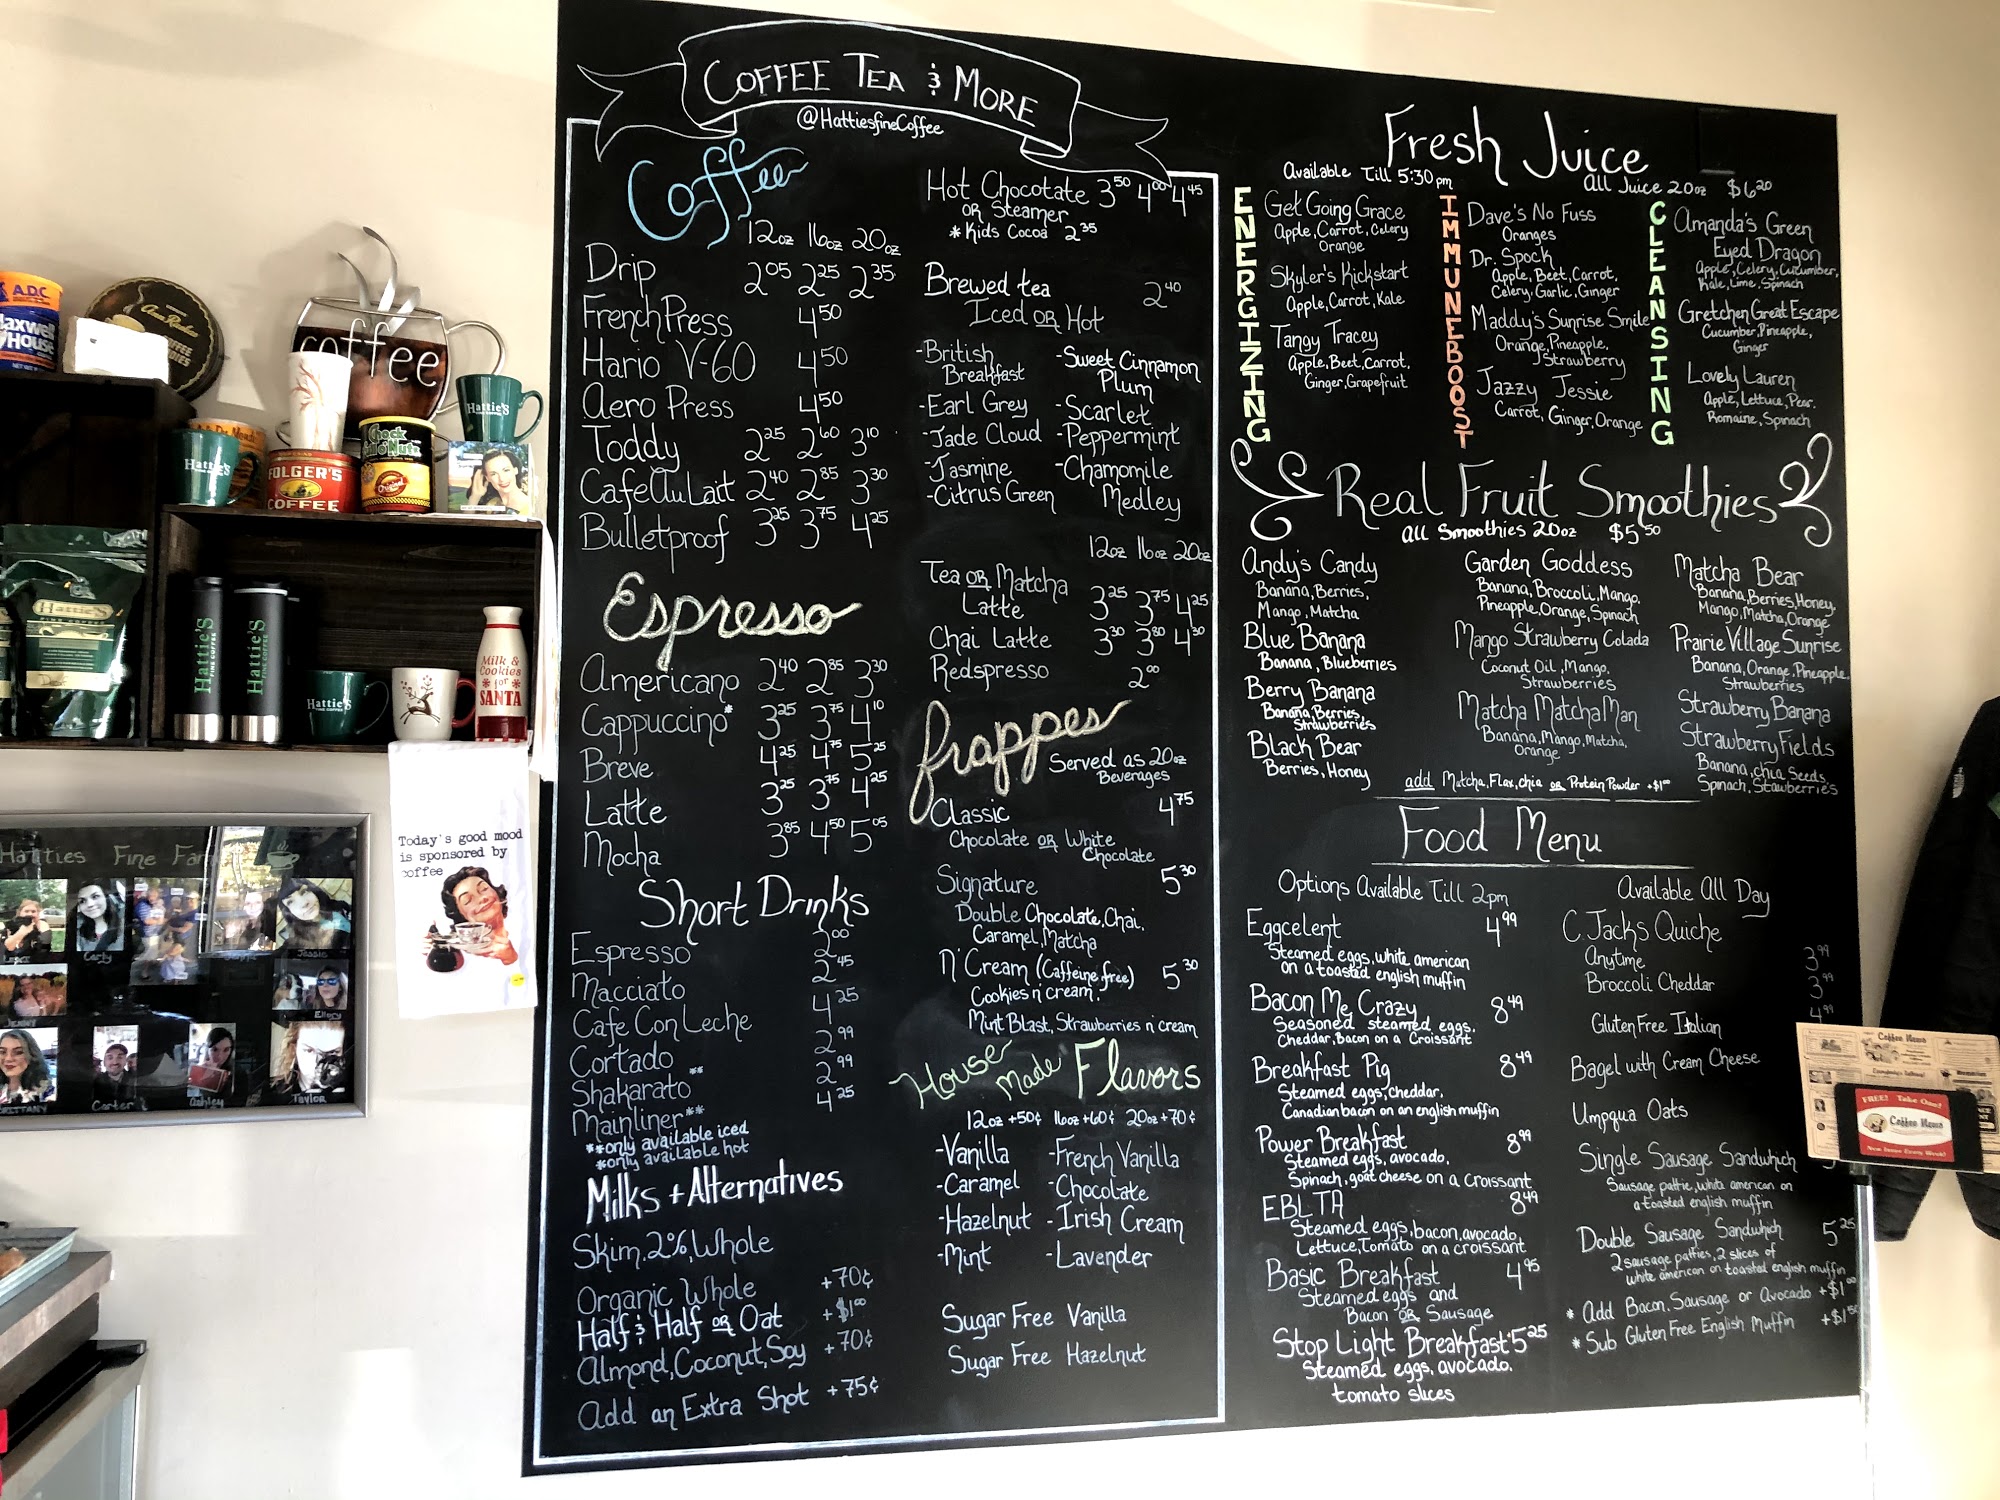 COFFEE TEA & MORE
@HattiesfineCoffee
Coffee
12oz 16oz 20oz
Drip 2.05 2.25 2.35
French Press 4.50
Hario V-60 4.50
Aero Press 4.50
Toddy 2.25 2.60 3.10
Cafe Au Lait 2.40 2.85 3.30
Bulletproof 3.25 3.75 4.25
Espresso
Americano 2.40 2.85 3.30
Cappuccino* 3.25 3.75 4.10
Breve 4.25 4.75 5.25
Latte 3.25 3.75 4.25
Mocha 3.85 4.50 5.05
Short Drinks
Espresso 2.00
Macciato 2.45
Cafe Con Leche 4.25
Cortado 2.99
Shakarato** 2.99
Mainliner** 4.25
**only available iced
*only available hot
Milks + Alternatives
Skim, 2%, Whole
Organic Whole +70¢
Half & Half or Oat +$1.00
Almond, Coconut, Soy +70¢
Add an Extra Shot +75¢
Hot Chocotate 3.50 4.00 4.45
or Steamer
*Kids Cocoa 2.35
Brewed tea 2.40
Iced or Hot
-British Breakfast
-Earl Grey
-Jade Cloud
-Jasmine
-Citrus Green
-Sweet Cinnamon Plum
-Scarlet
-Peppermint
-Chamomile Medley
12oz 16oz 20oz
Tea or Matcha
Latte 3.25 3.75 4.25
Chai Latte 3.30 3.80 4.30
Redspresso 2.00
frappes
Served as 20oz
Beverages
Classic 4.75
Chocolate or White
Chocolate
Signature 5.30
Double Chocolate, Chai,
Caramel, Matcha
N' Cream (Caffeine free) 5.30
Cookies n' cream,
Mint Blast, Strawberries n' cream
House Made Flavors
12oz +50¢ 16oz +60¢ 20oz +70¢
-Vanilla
-Caramel
-Hazelnut
-Mint
-French Vanilla
-Chocolate
-Irish Cream
-Lavender
Sugar Free Vanilla
Sugar Free Hazelnut
Fresh Juice
Available Till 5:30pm
All Juice 20oz $6.20
ENERGIZING
Get Going Grace
Apple, Carrot, Celery
Orange
Skyler's Kickstart
Apple, Carrot, Kale
Tangy Tracey
Apple, Beet, Carrot,
Ginger, Grapefruit
IMMUNEBOOST
Dave's No Fuss
Oranges
Dr. Spock
Apple, Beet, Carrot,
Celery, Garlic, Ginger
Maddy's Sunrise Smile
Orange, Pineapple,
Strawberry
Jazzy Jessie
Carrot, Ginger, Orange
CLEANSING
Amanda's Green
Eyed Dragon
Apple, Celery, Cucumber,
Kale, Lime, Spinach
Gretchen Great Escape
Cucumber, Pineapple,
Ginger
Lovely Lauren
Apple, Lettuce, Pear,
Romaine, Spinach
Real Fruit Smoothies
all Smoothies 20oz $5.50
Andy's Candy
Banana, Berries,
Mango, Matcha
Blue Banana
Banana, Blueberries
Berry Banana
Banana, Berries,
Strawberries
Black Bear
Berries, Honey
Garden Goddess
Banana, Broccoli, Mango,
Pineapple, Orange, Spinach
Mango Strawberry Colada
Coconut Oil, Mango,
Strawberries
Matcha Matcha Man
Banana, Mango, Matcha,
Orange
Matcha Bear
Banana, Berries, Honey,
Mango, Matcha, Orange
Prairie Village Sunrise
Banana, Orange, Pineapple,
Strawberries
Strawberry Banana
Strawberry Fields
Banana, chia Seeds,
Spinach, Stawberries
add Matcha, Flax, chia or Protein Powder +$1.00
Food Menu
Options Available Till 2pm
Eggcelent 4.99
Steamed eggs, white american
on a toasted english muffin
Bacon Me Crazy 8.49
Seasoned steamed eggs,
Cheddar, Bacon on a Croissant
Breakfast Pig 8.49
Steamed eggs, cheddar,
Canadian bacon on an english muffin
Power Breakfast 8.99
Steamed eggs, avocado,
Spinach, goat cheese on a croissant
EBLTA 8.49
Steamed eggs, bacon, avocado,
Lettuce, Tomato on a croissant
Basic Breakfast 4.95
Steamed eggs and
Bacon or Sausage
Stop Light Breakfast 5.25
Steamed eggs, avocado,
tomato slices
Available All Day
C. Jacks Quiche
Anytime 3.99
Broccoli Cheddar 3.99
Gluten Free Italian 4.99
Bagel with Cream Cheese
Umpqua Oats
Single Sausage Sandwhich
Sausage pattie, white american on
a toasted english muffin
Double Sausage Sandwhich 5.25
2 sausage patties, 2 slices of
white american on toasted english muffin
* Add Bacon, Sausage or Avocado +$1.00
* Sub Gluten Free English Muffin +$1.50
A.D.C.
Maxwell
HOUSE
coffee
Hattie's
Chock
full o' Nuts
Original
Hattie's
FOLGER'S
COFFEE
Hattie's
Hattie's
FINE COFFEE
Hattie's
FINE COFFEE
Hattie's
FINE COFFEE
Milk &
Cookies
for
SANTA
Today's good mood
is sponsored by
coffee
Hatties Fine Fam
Carly
Jessie
Ellory
JENNY
BRITTANY
Carter
Ashley
Taylor
Coffee News
FREE! Take One!
Coffee News
New Issue Every Week!